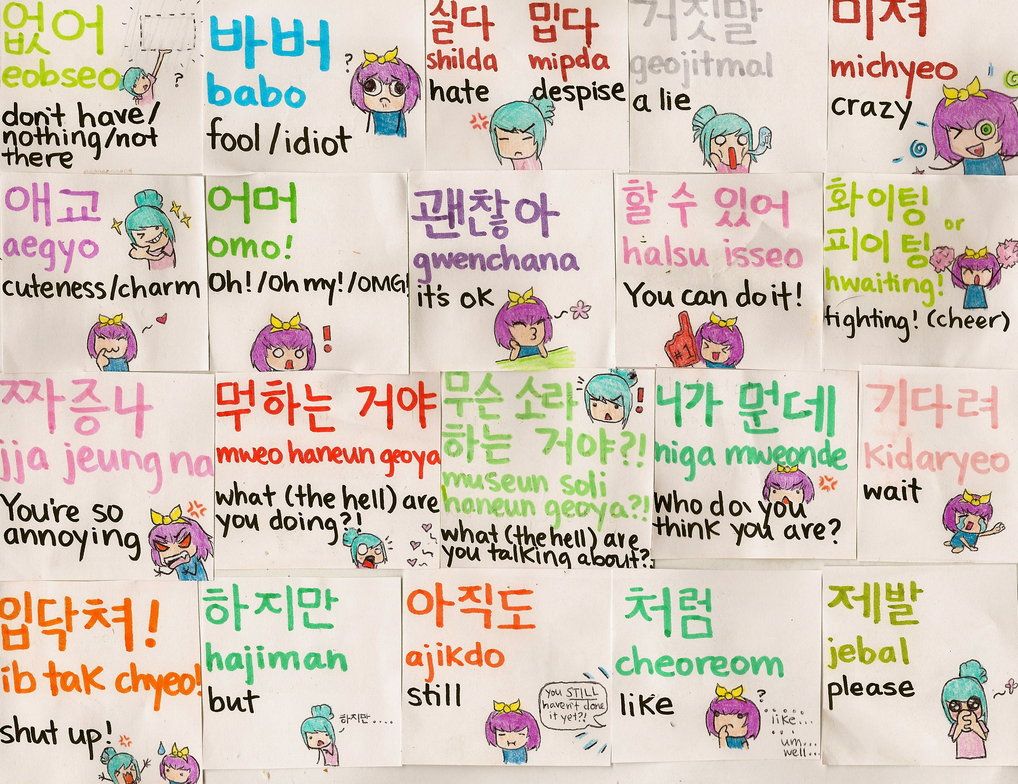 없어
eobseo
?
don't have/
nothing/not
there
바버
babo
?
fool/idiot
실다 밉다
shilda mipda
hate despise
거짓말
geojitmal
a lie
michyeo
crazy
애교
aegyo
cuteness/charm
어머
omo!
Oh!/Oh my!/OMG!
!
괜찮아
gwenchana
it's ok
할 수 있어
halsu isseo
You can do it!
#1
화이팅 or
피이팅
hwaiting!
fighting! (cheer)
짜증나
jja jeung na
You're so
annoying
뭐하는 거야
mweo haneun geoya
what (the hell) are
you doing?!
무슨 소라
!
하는 거야?!
museun soli
haneun geoya?!
what (the hell) are
you talking about?!
니가 뭔데
niga mweonde
Who do you
think you are?
기다려
kidaryeo
wait
입닥쳐!
ib tak chyeo!
shut up!
하지만
hajiman
but
하지만....
아직도
ajikdo
still
you STILL
haven't done
it yet?!
처럼
cheoreom
like
?
like...
um...
well...
제발
jebal
please